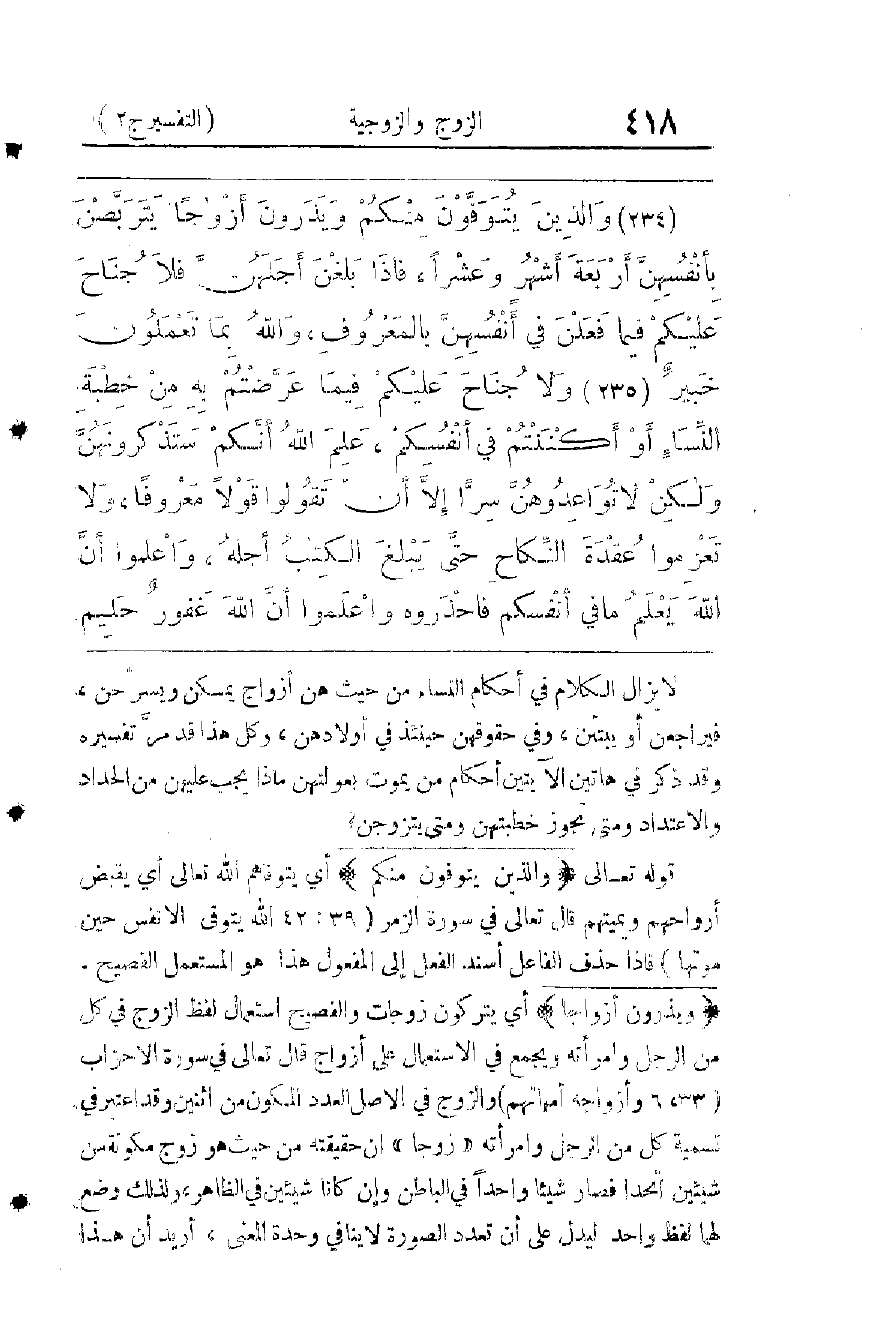 ٤١٨ الزوج والزوجية (التفسير ج٢)
(٢٣٤) وَالذِينَ يُتَوَفَّوْنَ مِنْـكُمْ وَيَذَرونَ أَزْوٰجًا يَتَرَبَّصْنَ
بِأَنْفُسِهِنَّ أَرْبَعَةَ أَشْهُرٍ وَعَشْراً ، فَاذَا بَلَغْنَ أَجَلَهُنَّ فلاَ جُنَاحَ
عَليْـكُمْ فيما فَعَلْنَ في أَنْفُسِهِنَّ بالمَعْرُوفِ ، وَاللهُ بِمَا تَعْمَلُونَ
خَبيرٌ (٢٣٥) وَلاَ جُنَاحَ عَليْـكُمْ فِيمَا عَرَّضْتُمْ بِهِ مِنْ خِطْبَةِ
النِّسَاءِ أَوْ أَكْنَنْتُمْ في أنْفُسِكمْ ، عَلِمَ اللهُ أنَّـكمْ سَتَذْكرونَهُنَّ
وَلٰـكِنْ لاتُوَاعِدُوهُنَّ سِرًّا إلاَّ أنْ تَقُولوا قَوْلاً مَعْروفًا ، وَلا
تَعْزِموا عُقْدَةَ النِّـكاحِ حتَّى يَبْلغَ الـكِتٰبُ أجلهُ ، وَاعْلموا أنَّ
اللهَ يَعْلَمُ مافي أنْفُسكم فاحْذَروه واعْلَموا أنَّ اللهَ غَفورٌ حَليم.
لايزال الـكلام في أحكام النساء من حيث هن أزواج يمسكن ويسرّحن ،
فيراجعن أو يبتتن ، وفي حقوقهن حينئذ في أولادهن ، وكل هذا قد مرَّ تفسيره
وقد ذكر في هاتين الآيتين أحكام من يموت بعولتهن ماذا يجب عليهن من الحداد
والاعتداد ومتى تجوز خطبتهن ومتى يتزوجن؟
قوله تعـالى ﴿ والذين يتوفون منكم ﴾ أي يتوفاهم الله تعالى أي يقبض
أرواحهم ويميتهم قال تعالى في سورة الزمر ( ٣٩ : ٤٢ الله يتوفى الانفس حين
موتها ) فاذا حذف الفاعل أسند الفعل إلى المفعول هذا هو المستعمل الفصيح .
﴿ ويذرون أزواجا ﴾ أي يتركون زوجات والفصيح استعمال لفظ الزوج في كل
من الرجل وامرأته ويجمع في الاستعمال على أزواج قال تعالى في سورة الاحزاب
( ٣٣، ٦ وأزواجه أمهاتهم) والزوج في الاصل العدد المكون من اثنين وقد اعتبر في
تسمية كل من الرجل وامرأته « زوجا » ان حقيقته من حيث هو زوج مكونة من
شيئين اتحدا فصار شيئا واحداً في الباطن وإن كانا شيئين في الظاهر، ولذلك وضع
لهما لفظ واحد ليدل على أن تعدد الصورة لاينافي وحدة المعنى ، أريد أن هـذا